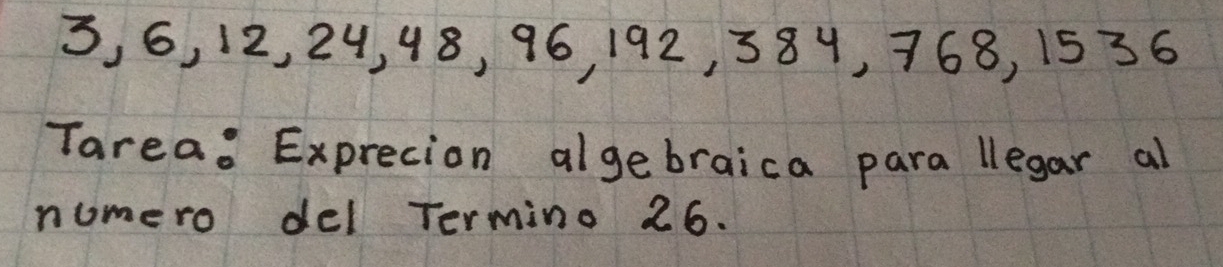 3, 6, 12, 24, 48, 96, 192, 384, 768, 1536
Tarea: Exprecion algebraica para llegar al
numero del Termino 26.